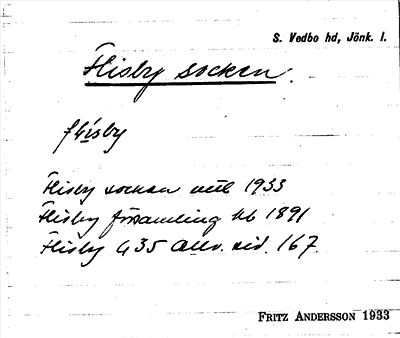 S. Vedbo hd, Jönk. l.
Flisby socken.
flìsby
Flisby socken 1933
Flisby församling kb 1891
Flisby G 35 Allv. sid. 167.
FRITZ ANDERSSON 1933